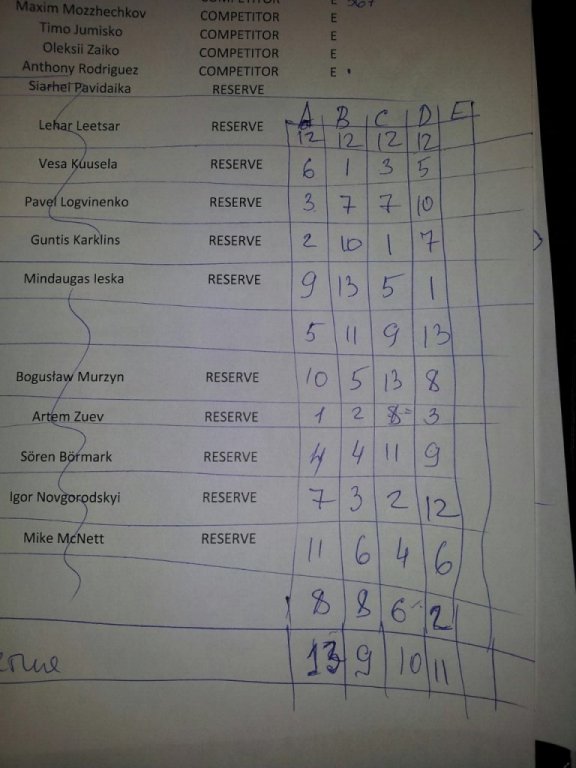 Maxim Mozzhechkov COMPETITOR E 567
Timo Jumisko COMPETITOR E
Oleksii Zaiko COMPETITOR E
Anthony Rodriguez COMPETITOR E
Siarhei Pavidaika RESERVE
A B C D E
Lehar Leetsar RESERVE 12 12 12 12
Vesa Kuusela RESERVE 6 1 3 5
Pavel Logvinenko RESERVE 3 7 7 10
Guntis Karklins RESERVE 2 10 1 7
Mindaugas Ieska RESERVE 9 13 5 1
5 11 9 13
Bogusław Murzyn RESERVE 10 5 13 8
Artem Zuev RESERVE 1 2 8 3
Sören Börmark RESERVE 4 4 11 9
Igor Novgorodskyi RESERVE 7 3 2 12
Mike McNett RESERVE 11 6 4 6
8 8 6 2
13 9 10 11